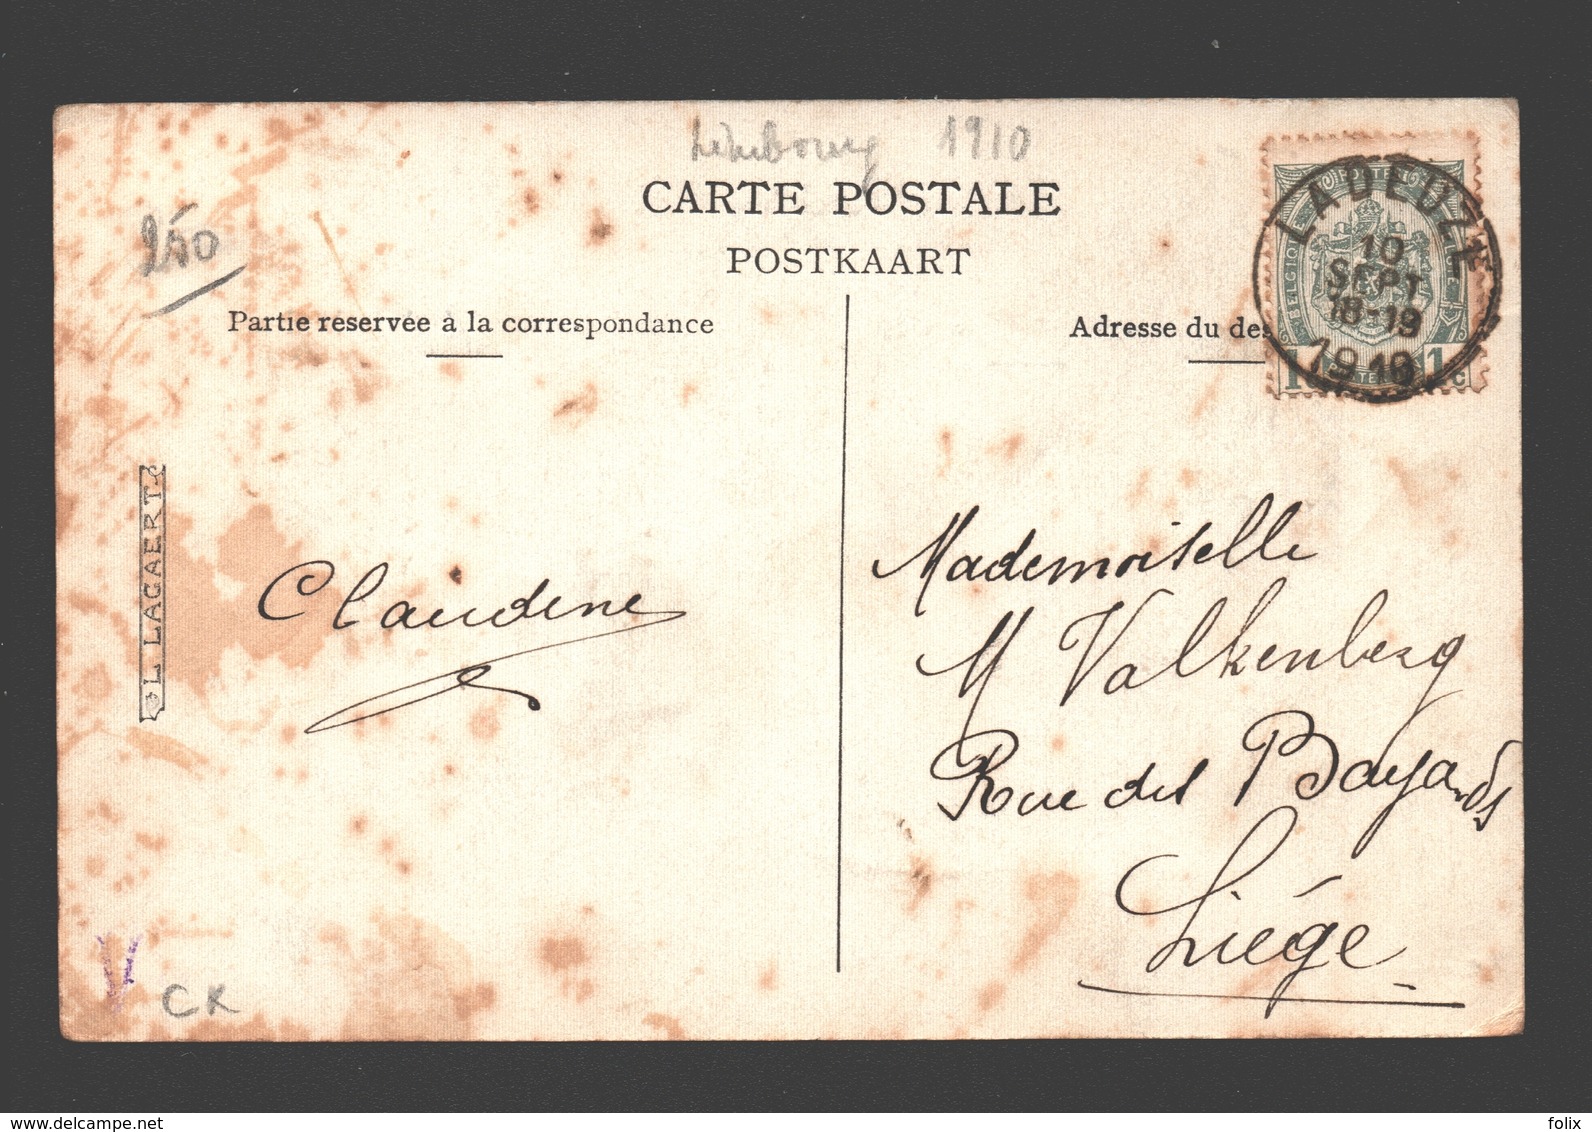 Limbourg 1910
CARTE POSTALE
POSTKAART
250
Partie reservee à la correspondance
Adresse du des
LADEUZE
10
SEPT
18-19
1910
POSTERIJ
BELGIQUE
1 POSTES 1 c
L LAGAERT
Claudine
Mademoiselle
M Valkenberg
Rue des Bayards
Liége
CK
www.delcampe.net
folix